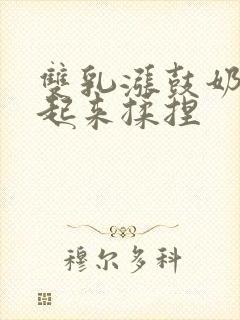 雙乳漲鼓奶
起来揉捏
穆尔多科